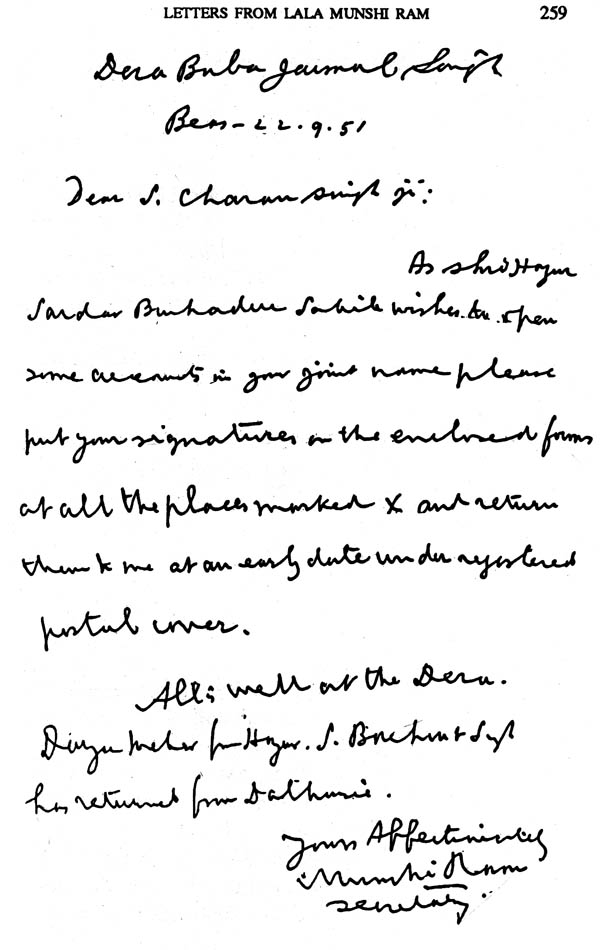 LETTERS FROM LALA MUNSHI RAM 259
Dera Baba Jaimal Singh
Beas - 22.9.51
Dear S. Charan Singh ji:
As Shri Hazur
Sardar Bahadur Sahib wishes to open
some accounts in your joint name please
put your signatures on the enclosed forms
at all the places marked X and return
them to me at an early date under registered
postal cover.
All is well at the Dera.
Daya Mehar from Hazur. S. Bachint Singh
has returned from Dalhousie.
Yours Affectionately
Munshi Ram
Secretary